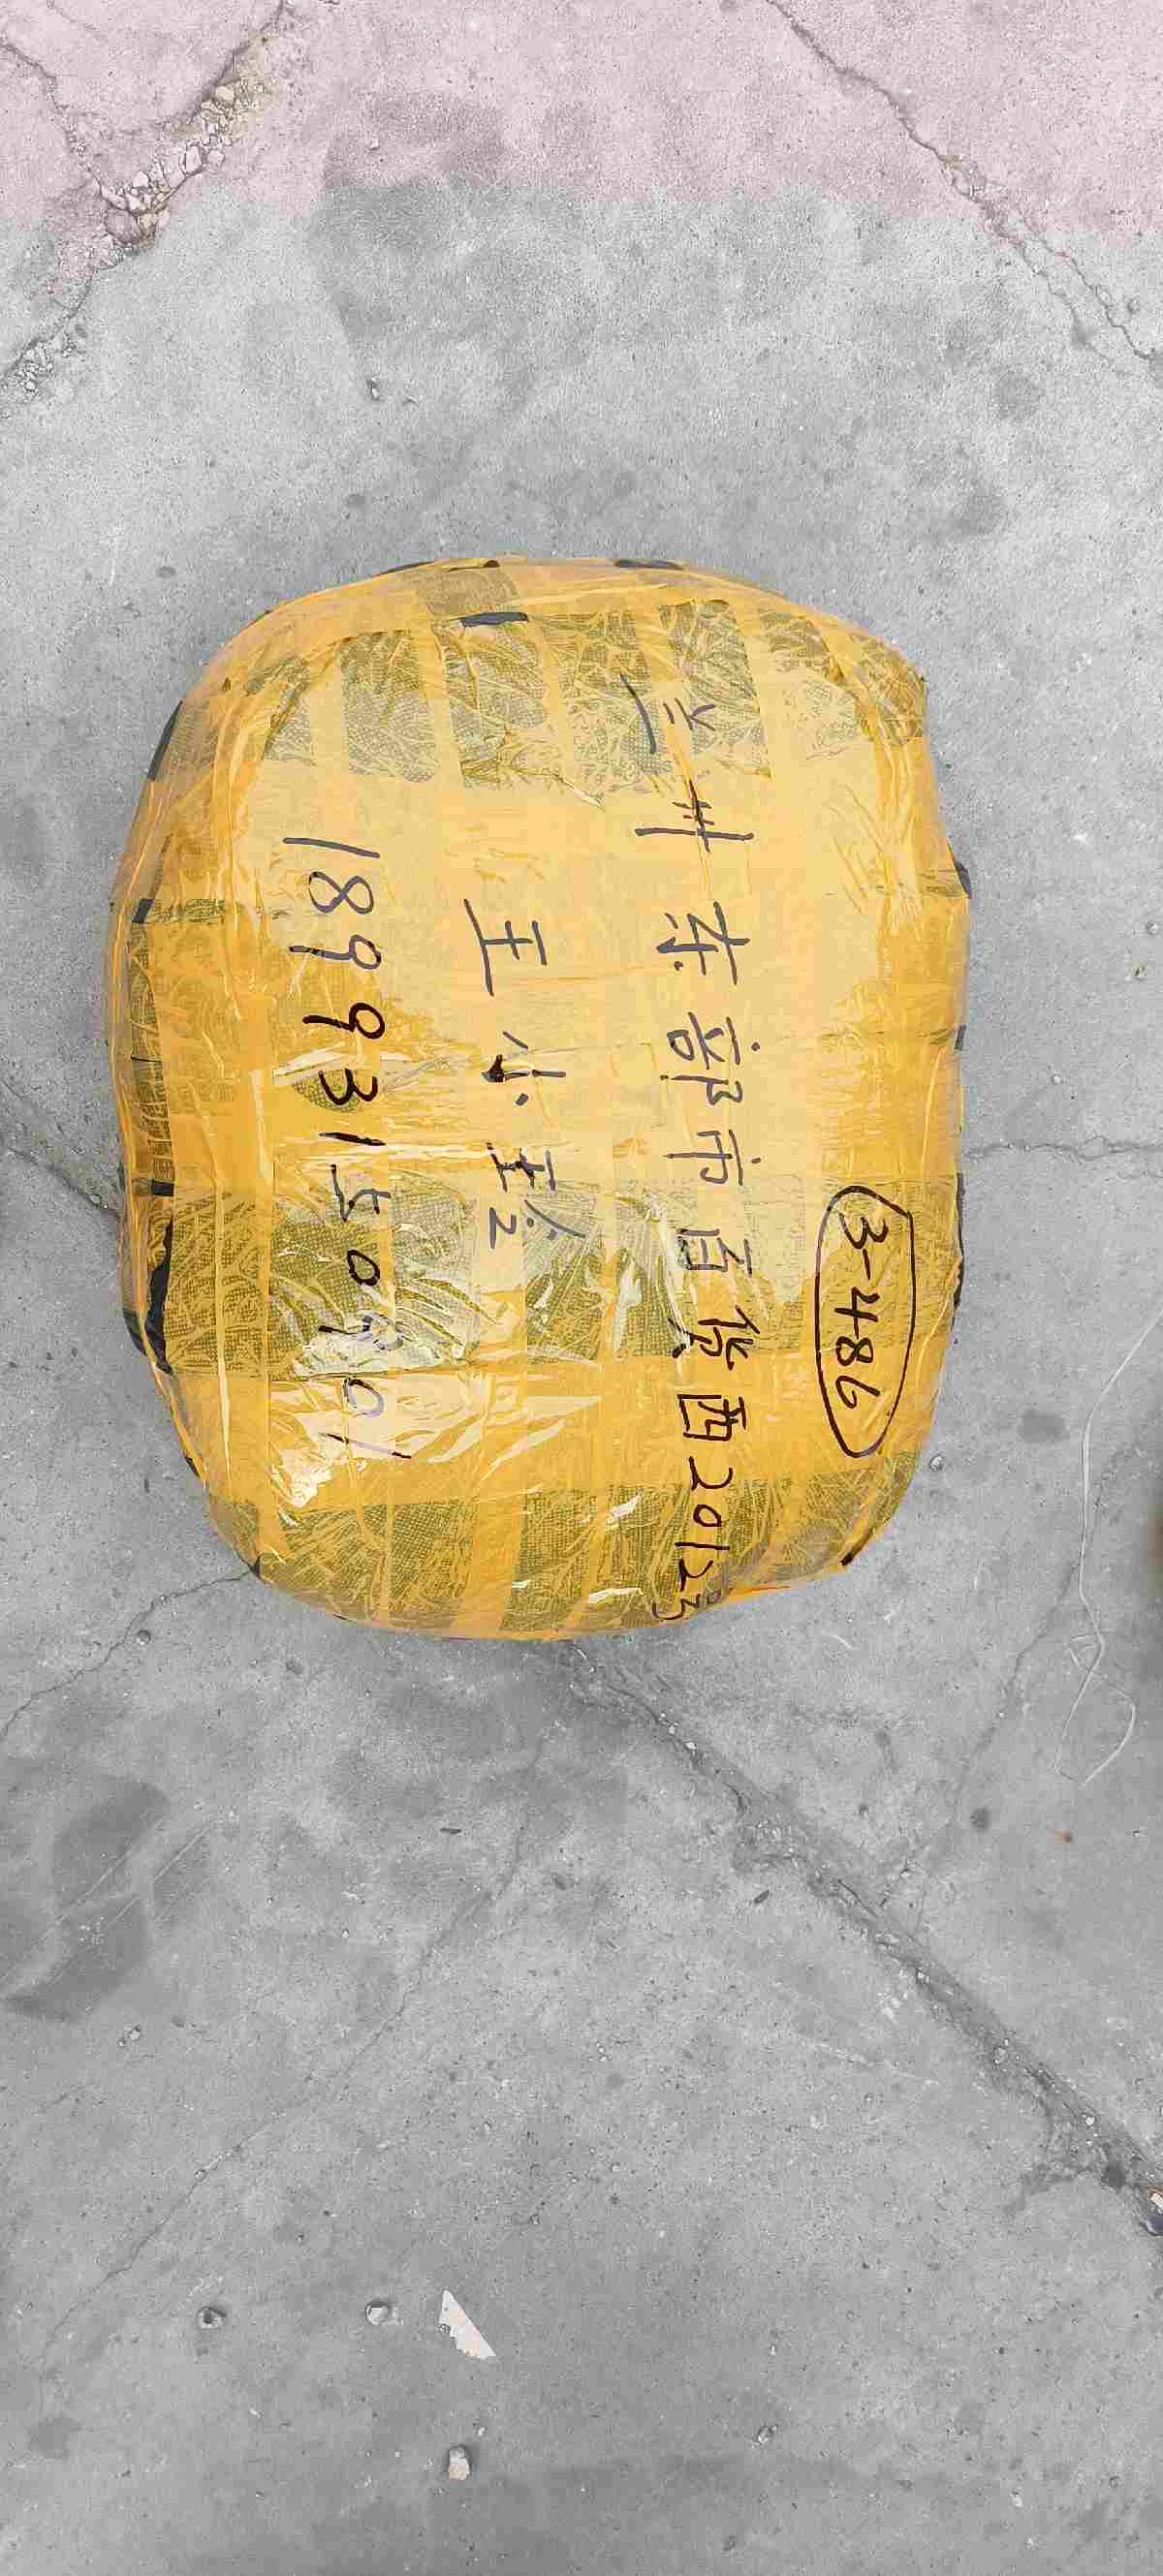 3-486
兰州东部市百货西20123
王小玲
18993150901